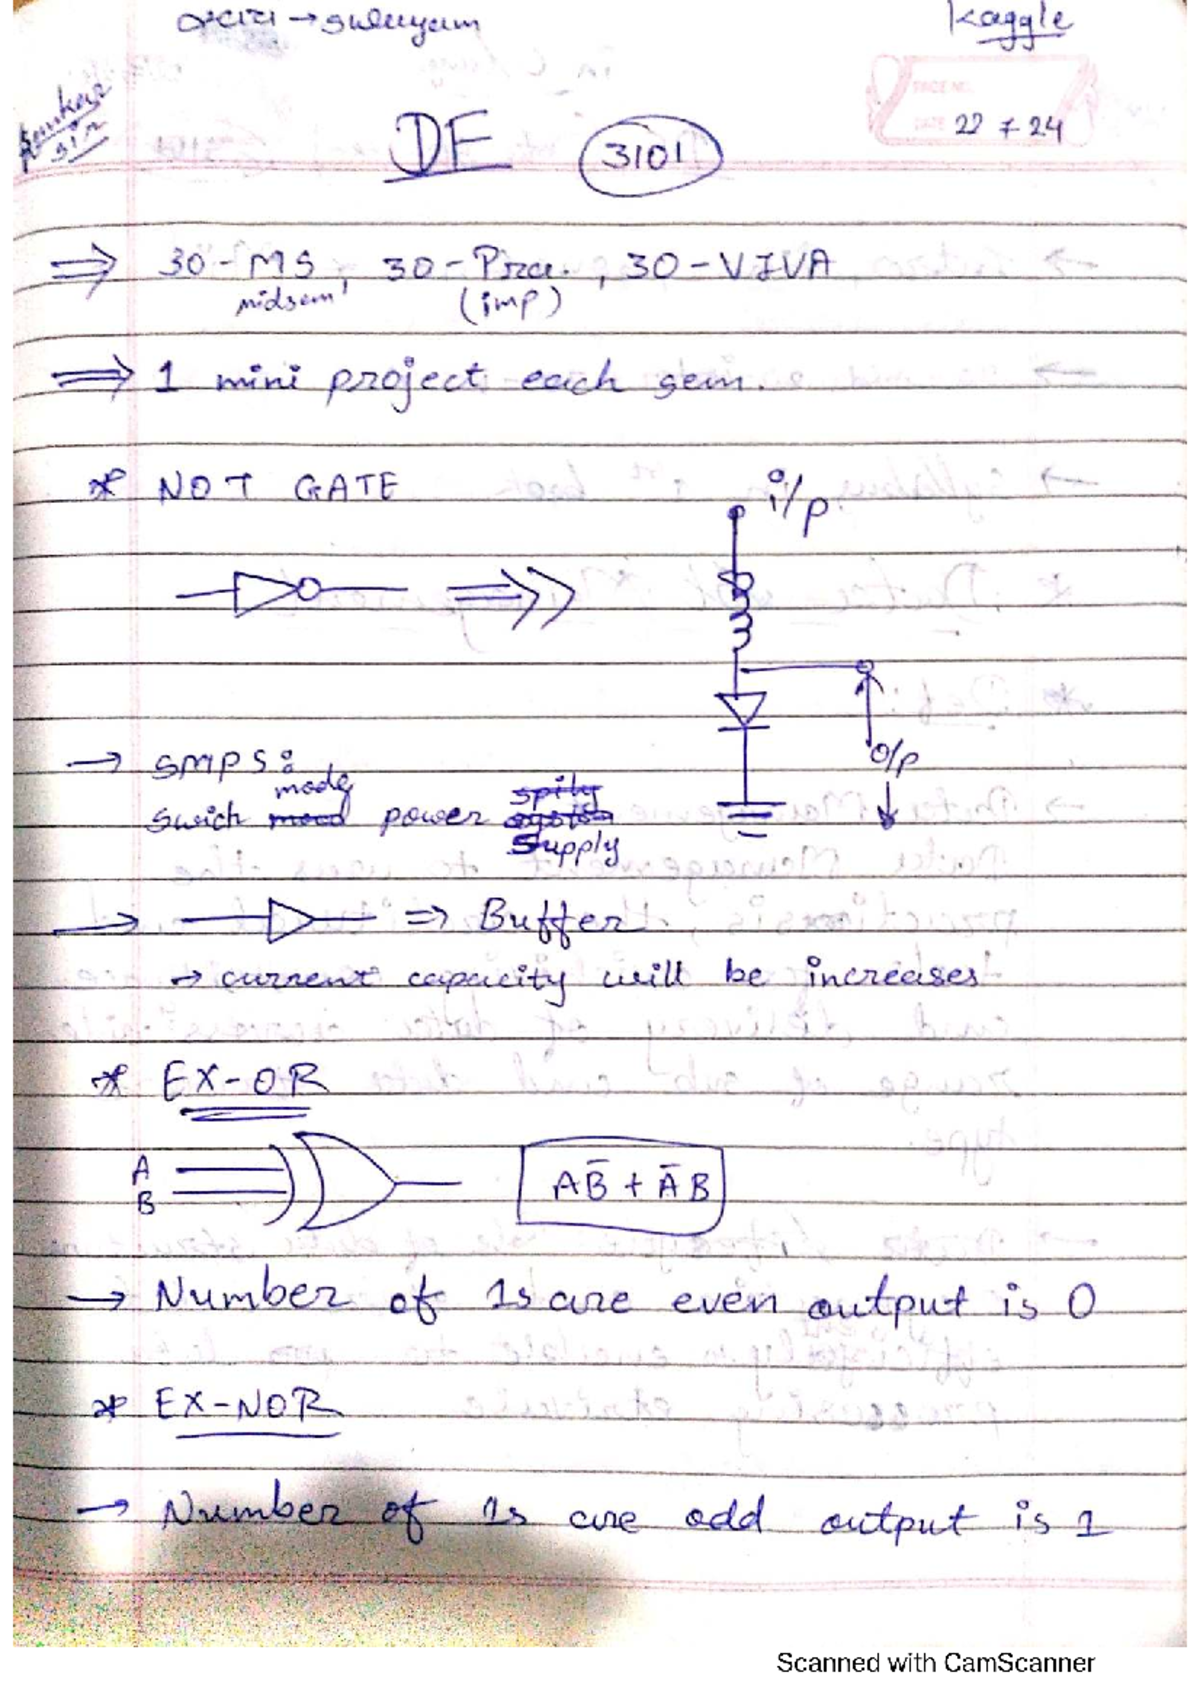 → swayam
Kaggle
sir
PAGE NO.
DATE
22 7 24
DE 3101
⇒ 30-MS, 30-Pra., 30-VIVA
midsem (imp)
⇒ 1 mini project each sem.
* NOT GATE
i/p
O/p
→ SMPS:
mode
swich power
supply
→ ⇒ Buffer
→ current capacity will be increases
* EX-OR
A
B
AB̄ + ĀB
→ Number of 1s are even output is 0
* EX-NOR
→ Number of 1s are odd output is 1
Scanned with CamScanner